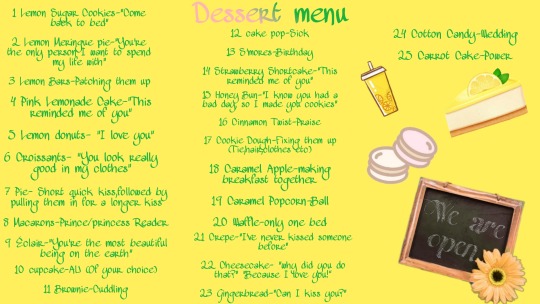 Dessert menu
1 Lemon Sugar Cookies-"Come
back to bed"
2 Lemon Meringue pie-"You're
the only person I want to spend
my life with"
3 Lemon Bars-Patching them up
4 Pink Lemonade Cake-"This
reminded me of you"
5 Lemon donuts- "I love you"
6 Croissants- "You look really
good in my clothes"
7 Pie- Short quick kiss,followed by
pulling them in for a longer kiss
8 Macarons-Prince/princess Reader
9 Eclair-"You're the most beautiful
being on the earth"
10 cupcake-AU (Of your choice)
11 Brownie-Cuddling
12 cake pop-Sick
13 S'mores-Birthday
14 Strawberry Shortcake-"This
reminded me of you"
15 Honey Bun-"I know you had a
bad day, so I made you cookies"
16 Cinnamon Twist-Praise
17 Cookie Dough-Fixing them up
(Tie,hair,clothes etc)
18 Caramel Apple-making
breakfast together
19 Caramel Popcorn-Ball
20 Waffle-only one bed
21 Crepe-"I've never kissed someone
before"
22 Cheesecake- "why did you do
that?" "Because I love you!"
23 Gingerbread-"Can I kiss you?"
24 Cotton Candy-Wedding
25 Carrot Cake-Power
We are
open